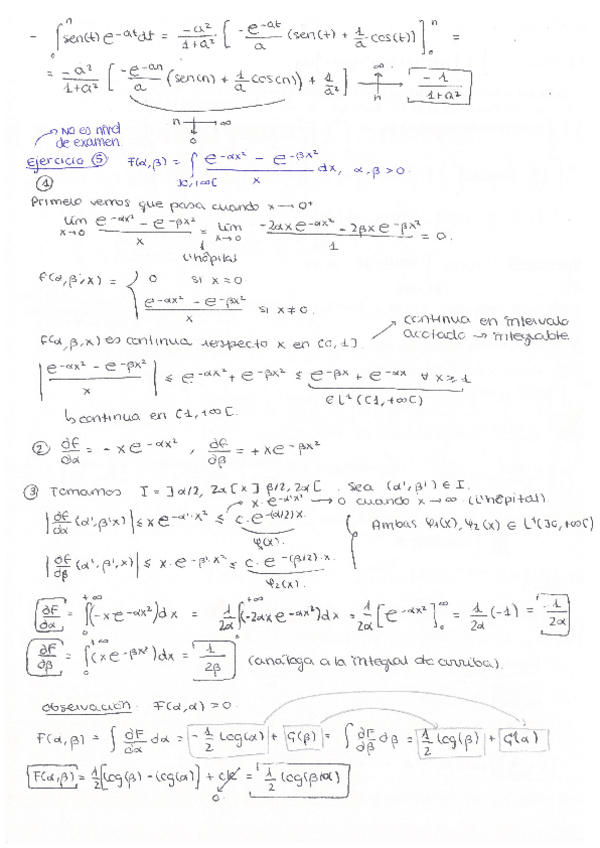 - ∫₀ⁿ sen(t) e^{-at} dt = -a²/(1+a²) [ -e^{-at}/a (sen(t) + 1/a cos(t)) ]₀ⁿ =
= -a²/(1+a²) [ -e^{-an}/a (sen(n) + 1/a cos(n)) + 1/a² ] → ∞ n -1/(1+a²)
n → ∞
0
→ No es nivel de examen.
Ejercicio ⑤ F(α,β) = ∫_{]0,+∞[} (e^{-αx²} - e^{-βx²})/x dx, α,β > 0.
①
Primero vemos que pasa cuando x → 0⁺
lím_{x→0} (e^{-αx²} - e^{-βx²})/x = lím_{x→0} (-2αxe^{-αx²} - 2βxe^{-βx²})/1 = 0.
L'hôpital
f(α,β,x) = { 0 si x = 0
(e^{-αx²} - e^{-βx²})/x si x ≠ 0.
f(α,β,x) es continua respecto x en [0,1]. → continua en intervalo acotado → integrable.
|(e^{-αx²} - e^{-βx²})/x| ≤ e^{-αx²} + e^{-βx²} ≤ e^{-βx} + e^{-αx} ∀ x ≥ 1
∈ L¹([1,+∞[)
↳ continua en [1,+∞[.
② ∂f/∂α = - x e^{-αx²} , ∂f/∂β = + x e^{-βx²}
③ Tomamos I = ]α/2, 2α[ x ] β/2, 2α[ . Sea (α',β') ∈ I.
x·e^{-α'x'} → 0 cuando x → ∞ (L'hôpital)
|∂f/∂α (α',β',x)| ≤ x e^{-α'·x²} ≤ c·e^{-(α/2)x}. Ambas φ₁(x), φ₂(x) ∈ L¹(]0,+∞[)
φ(x).
|∂f/∂β (α',β',x)| ≤ x·e^{-β'·x²} ≤ c·e^{-(β/2)·x}.
φ₂(x).
∂F/∂α = ∫₀^{+∞} (-xe^{-αx²})dx = 1/2α ∫₀^{+∞} (-2αxe^{-αx²})dx = 1/2α [e^{-αx²}]₀^{∞} = 1/2α (-1) = -1/2α
∂F/∂β = ∫₀^{+∞} (xe^{-βx²})dx = 1/2β (análoga a la integral de arriba).
observación. F(α,α) = 0.
F(α,β) = ∫ ∂F/∂α dα = -1/2 log(α) + G(β) = ∫ ∂F/∂β dβ = 1/2 log(β) + G(α)
F(α,β) = 1/2 [log(β) - log(α)] + cte = 1/2 log(β/α)
0